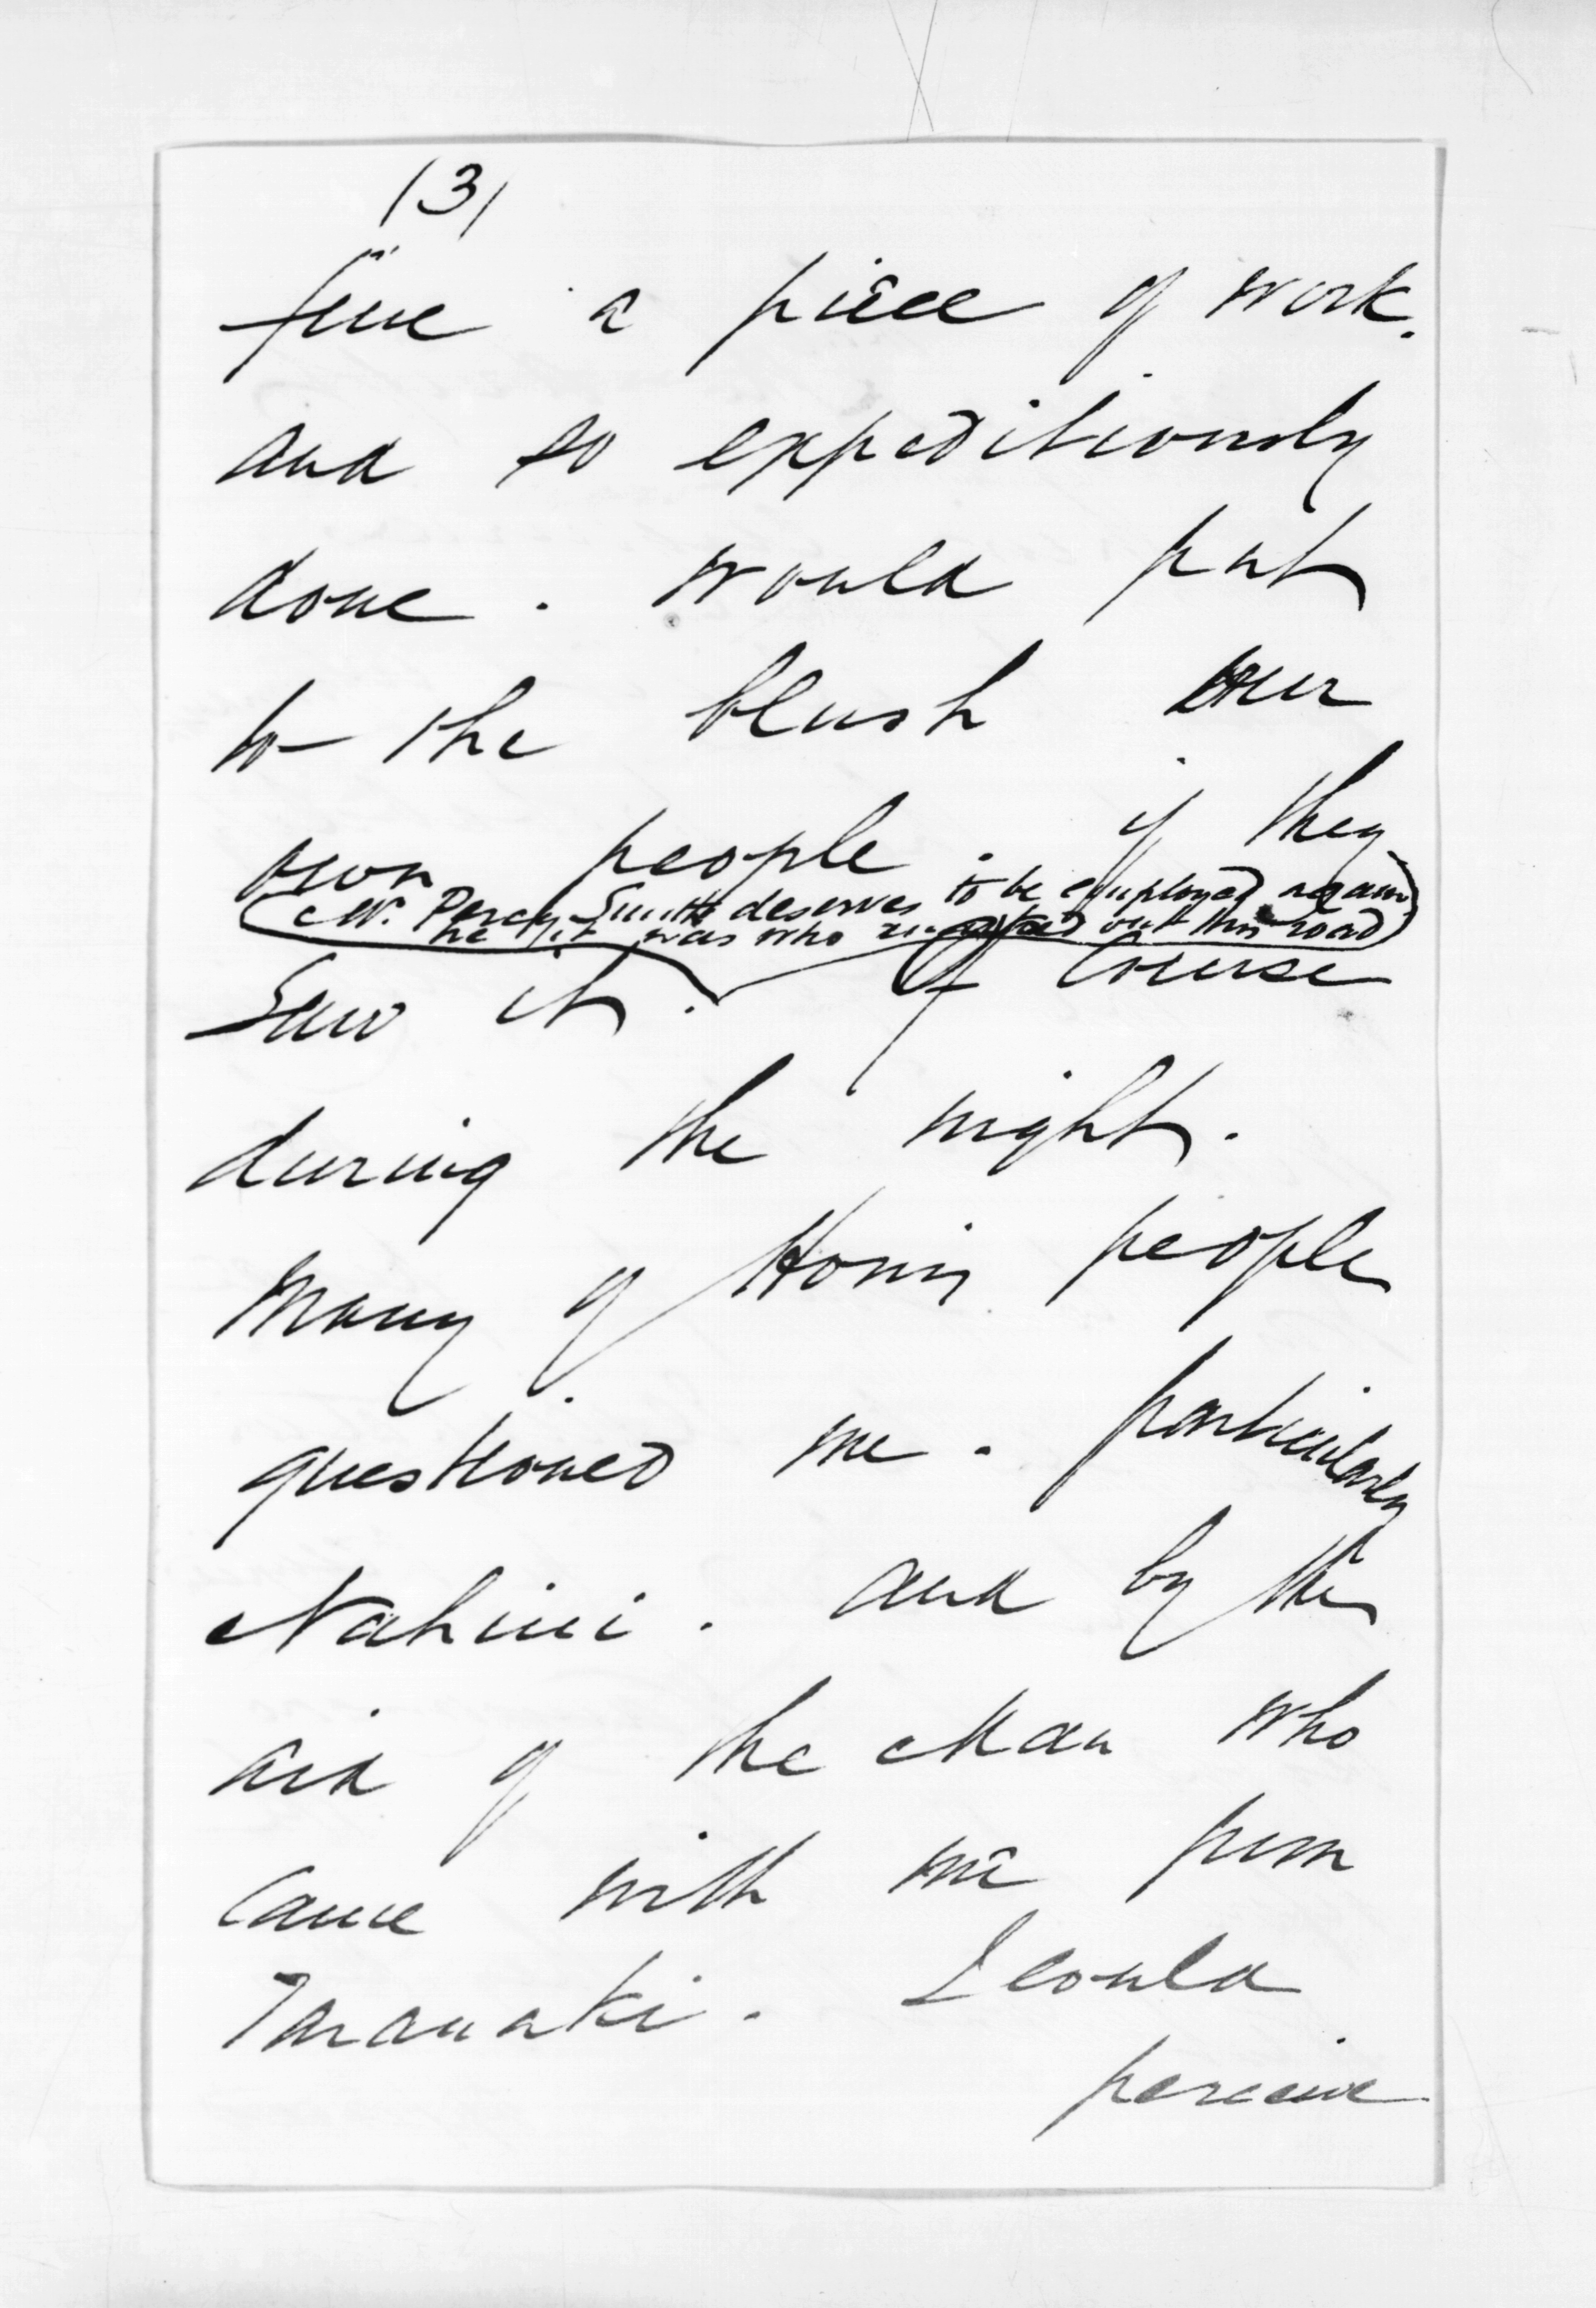 /3/
fine a piece of work.
and so expeditiously
done. would put
to the blush our
own people. if they
(Mr. Percy Smith deserves to be employed again
he it was who out this road)
Saw it. Of Course
during the night.
Many of Honis people
questioned me. particularly
Nahini. and by the
aid of the Man who
came with me from
Taranaki. I could
perceive